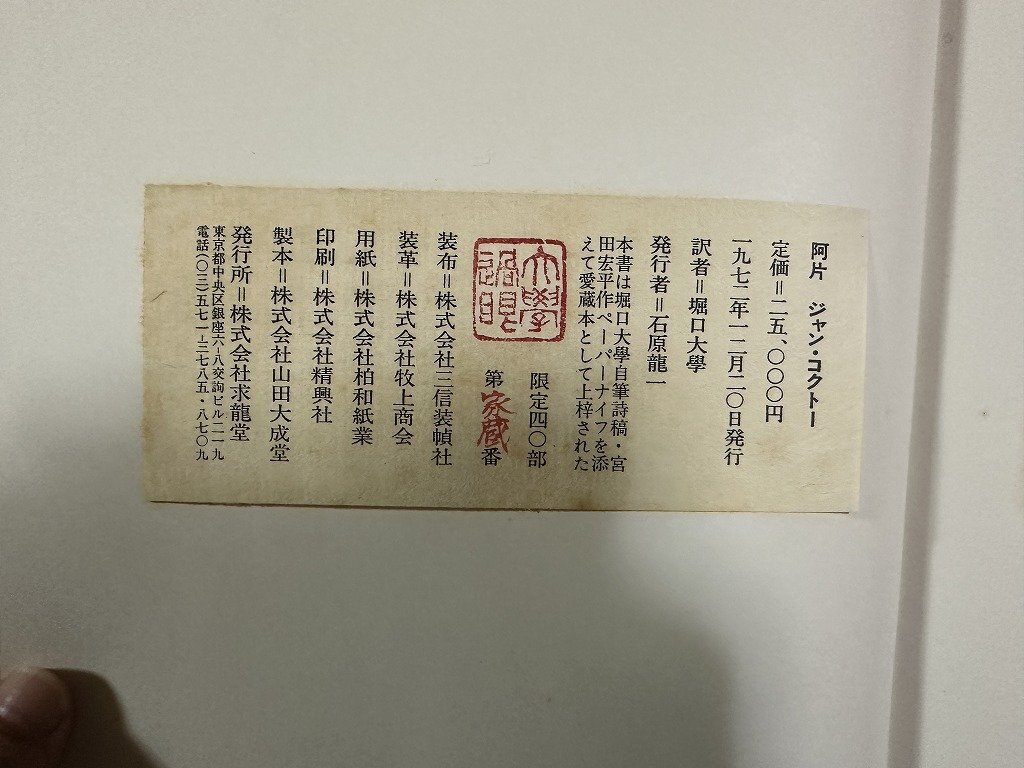 阿片　ジャン・コクトー
定価＝二五、〇〇〇円
一九七二年一二月二〇日発行
訳者＝堀口大學
発行者＝石原龍一
本書は堀口大學自筆詩稿・宮
田宏平作ペーパーナイフを添
えて愛蔵本として上梓された
限定四〇部
第家蔵番
大學
装布＝株式会社三信装幀社
装革＝株式会社牧上商会
用紙＝株式会社柏和紙業
印刷＝株式会社精興社
製本＝株式会社山田大成堂
発行所＝株式会社求龍堂
東京都中央区銀座六−八交詢ビル二一九
電話（〇三）五七一−三七八五・八七〇九